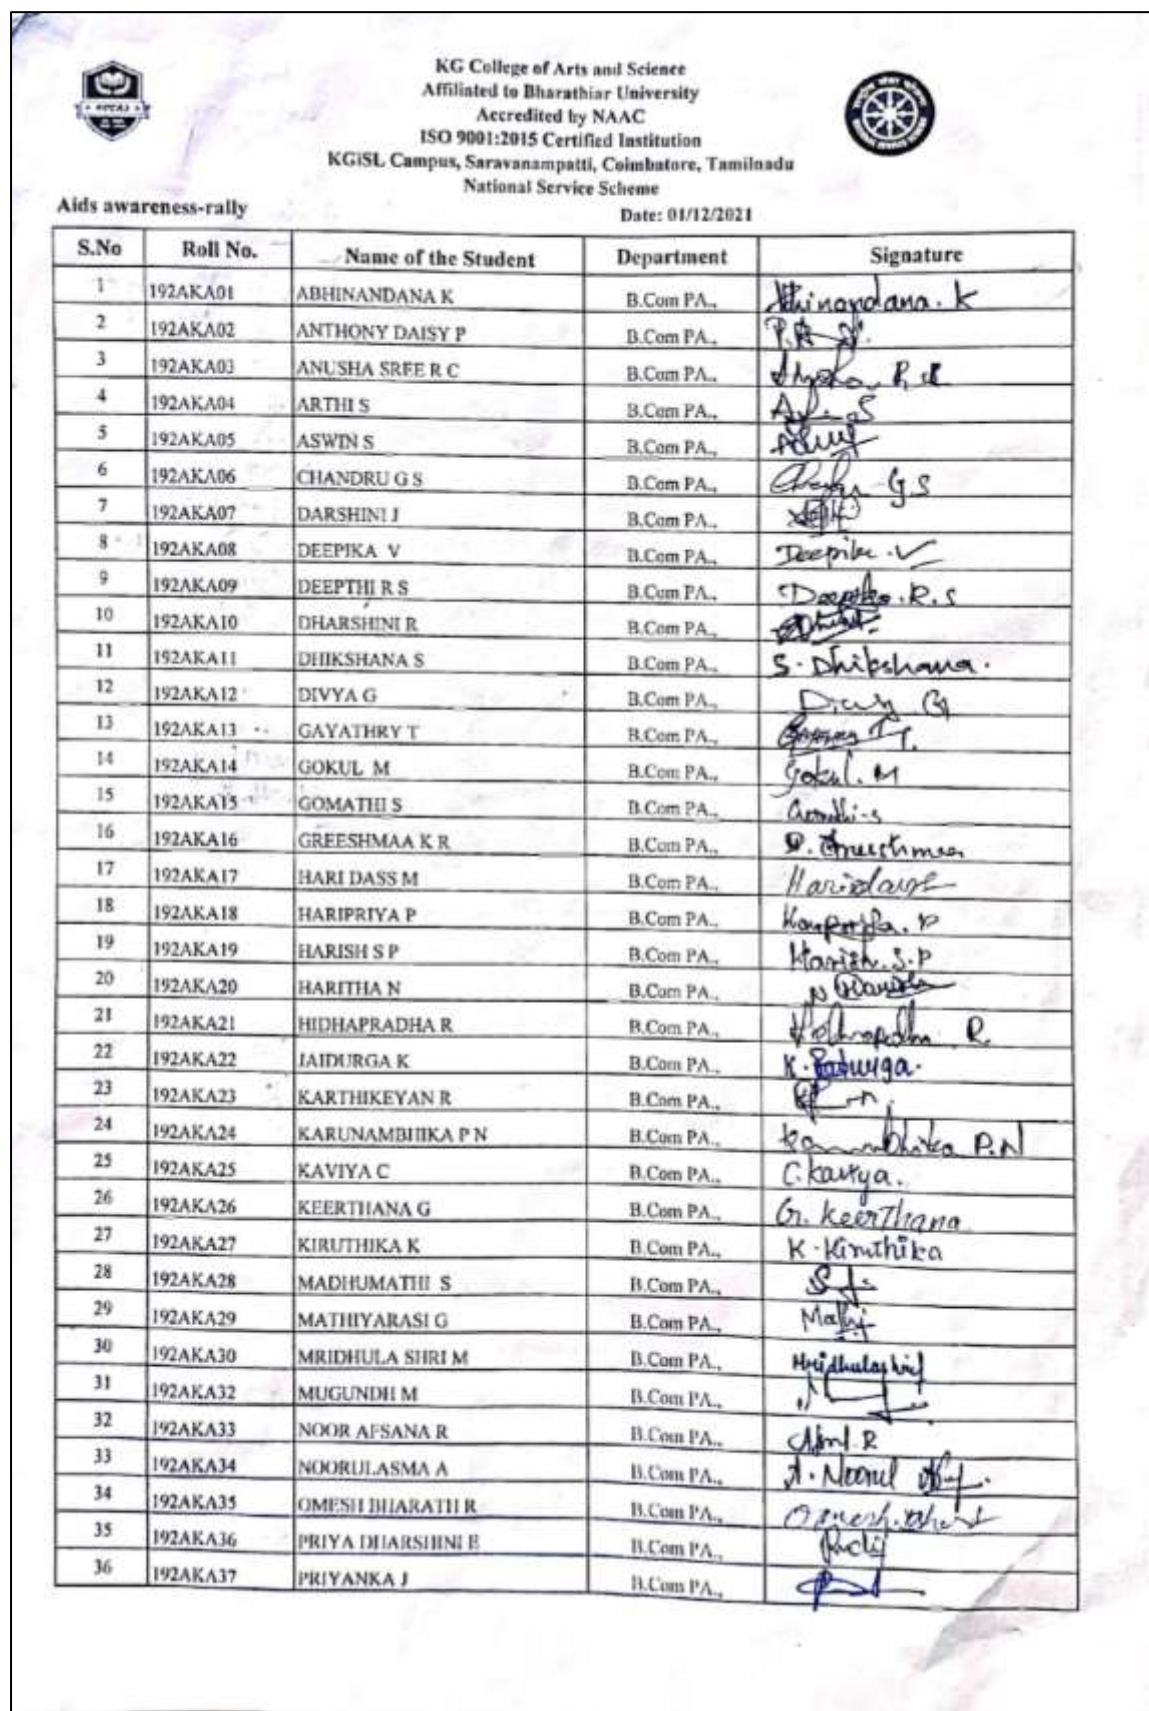 KG College of Arts and Science
Affiliated to Bharathiar University
Accredited by NAAC
ISO 9001:2015 Certified Institution
KGiSL Campus, Saravanampatti, Coimbatore, Tamilnadu
National Service Scheme
Aids awareness-rally Date: 01/12/2021
S.No Roll No. Name of the Student Department Signature
1 192AKA01 ABHINANDANA K B.Com PA., Abhinandana. K
2 192AKA02 ANTHONY DAISY P B.Com PA.,
3 192AKA03 ANUSHA SREE R C B.Com PA.,
4 192AKA04 ARTHI S B.Com PA.,
5 192AKA05 ASWIN S B.Com PA.,
6 192AKA06 CHANDRU G S B.Com PA., G S
7 192AKA07 DARSHINI J B.Com PA.,
8 192AKA08 DEEPIKA V B.Com PA., Deepika . V
9 192AKA09 DEEPTHI R S B.Com PA., R. S
10 192AKA10 DHARSHINI R B.Com PA.,
11 192AKA11 DHIKSHANA S B.Com PA., S. Dhikshana.
12 192AKA12 DIVYA G B.Com PA., G
13 192AKA13 GAYATHRY T B.Com PA.,
14 192AKA14 GOKUL M B.Com PA., Gokul. M
15 192AKA15 GOMATHI S B.Com PA.,
16 192AKA16 GREESHMAA K R B.Com PA.,
17 192AKA17 HARI DASS M B.Com PA.,
18 192AKA18 HARIPRIYA P B.Com PA.,
19 192AKA19 HARISH S P B.Com PA., Harish. S.P
20 192AKA20 HARITHA N B.Com PA., N
21 192AKA21 HIDHAPRADHA R B.Com PA., R
22 192AKA22 JAIDURGA K B.Com PA.,
23 192AKA23 KARTHIKEYAN R B.Com PA.,
24 192AKA24 KARUNAMBHIKA P N B.Com PA., P.N
25 192AKA25 KAVIYA C B.Com PA., C. Kaviya.
26 192AKA26 KEERTHANA G B.Com PA., G. KeerThana
27 192AKA27 KIRUTHIKA K B.Com PA., K. Kiruthika
28 192AKA28 MADHUMATHI S B.Com PA.,
29 192AKA29 MATHIYARASI G B.Com PA.,
30 192AKA30 MRIDHULA SHRI M B.Com PA., Mridhulashri
31 192AKA32 MUGUNDH M B.Com PA.,
32 192AKA33 NOOR AFSANA R B.Com PA., R
33 192AKA34 NOORULASMA A B.Com PA., A. Noorul
34 192AKA35 OMESH BHARATH R B.Com PA.,
35 192AKA36 PRIYA DHARSHINI E B.Com PA.,
36 192AKA37 PRIYANKA J B.Com PA.,